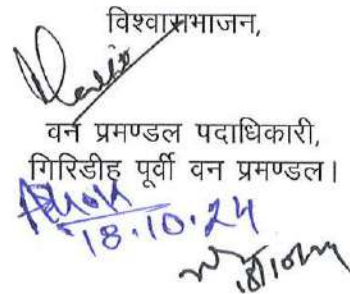 विश्वासभाजन,
वन प्रमण्डल पदाधिकारी,
गिरिडीह पूर्वी वन प्रमण्डल।
18.10.24